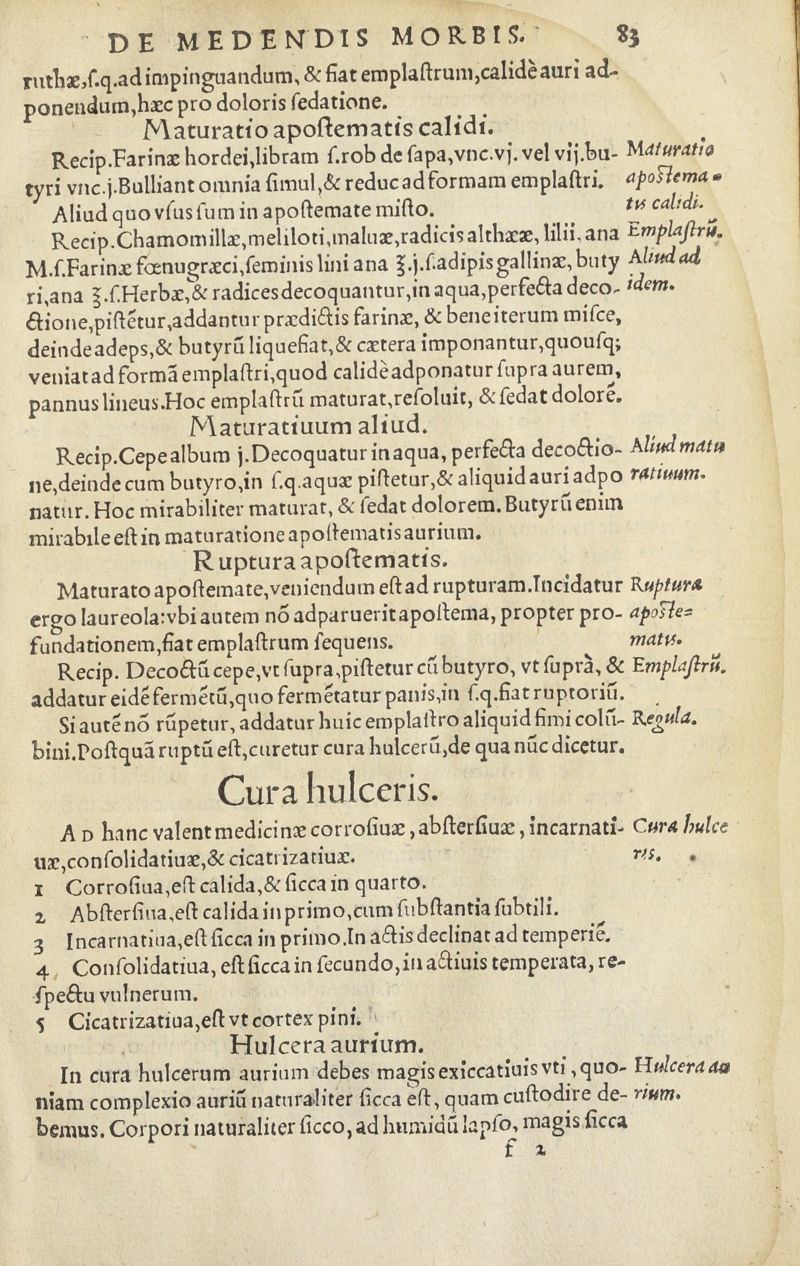 DE MEDENDIS MORBIS. 83
ruthæ,ſ.q.ad impinguandum, & fiat emplaſtrum,calidè auri ad-
ponendum,hæc pro doloris ſedatione.
Maturatio apoſtematis calidi.
Recip.Farinæ hordei,libram ſ.rob de ſapa,vnc.vj. vel vij.bu- Maturatio
tyri vnc.j.Bulliant omnia ſimul,& reduc ad formam emplaſtri. apoſtema-
Aliud quo vſus ſum in apoſtemate miſto. tis calidi.
Recip.Chamomillæ,meliloti,maluæ,radicis althææ, lilii, ana Emplaſtrū.
M.ſ.Farinæ fœnugræci,ſeminis lini ana ℥.j.ſ.adipis gallinæ, buty Aliud ad
ri,ana ℥.ſ.Herbæ,& radices decoquantur,in aqua,perfecta deco- idem.
ctione,piſtētur,addantur prædictis farinæ, & bene iterum miſce,
deinde adeps,& butyrū liquefiat,& cætera imponantur,quouſq;
veniat ad formā emplaſtri,quod calidè adponatur ſupra aurem,
pannus lineus.Hoc emplaſtrū maturat,reſoluit, & ſedat dolorē.
Maturatiuum aliud.
Recip.Cepe album j.Decoquatur in aqua, perfecta decoctio- Aliud matu
ne,deinde cum butyro,in ſ.q.aquæ piſtetur,& aliquid auri adpo ratiuum.
natur. Hoc mirabiliter maturat, & ſedat dolorem. Butyrū enim
mirabile eſt in maturatione apoſtematis aurium.
Ruptura apoſtematis.
Maturato apoſtemate,veniendum eſt ad rupturam.Incidatur Ruptura
ergo laureola:vbi autem nō adparuerit apoſtema, propter pro- apoſte=
fundationem,fiat emplaſtrum ſequens. matis.
Recip. Decoctū cepe,vt ſupra,piſtetur cū butyro, vt ſuprà, & Emplaſtrū.
addatur eidē fermētū,quo fermētatur panis,in ſ.q.fiat ruptoriū.
Si autē nō rūpetur, addatur huic emplaſtro aliquid fimi colū- Regula.
bini.Poſtquā ruptū eſt,curetur cura hulcerū,de qua nūc dicetur.
Cura hulceris.
AD hanc valent medicinæ corroſiuæ, abſterſiuæ, incarnati- Cura hulce
uæ,conſolidatiuæ,& cicatrizatiuæ. ris.
1 Corroſiua,eſt calida,& ſicca in quarto.
2 Abſterſiua,eſt calida in primo,cum ſubſtantia ſubtili.
3 Incarnatiua,eſt ſicca in primo.In actis declinat ad temperiē.
4 Conſolidatiua, eſt ſicca in ſecundo,in actiuis temperata, re-
ſpectu vulnerum.
5 Cicatrizatiua,eſt vt cortex pini.
Hulcera aurium.
In cura hulcerum aurium debes magis exiccatiuis vti, quo- Hulcera au
niam complexio auriū naturaliter ſicca eſt, quam cuſtodire de- rium.
bemus. Corpori naturaliter ſicco, ad humidū lapſo, magis ſicca
f 2